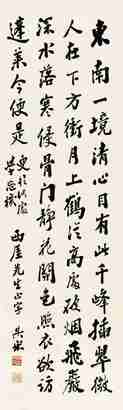 東南一境清心目有此千峰插翠微
人在下方衝月上鶴從高處破烟飛巖
深水落寒侵骨門靜花開色照衣欲訪
蓬萊今便是
更於何處
學忘機
西厓先生正字